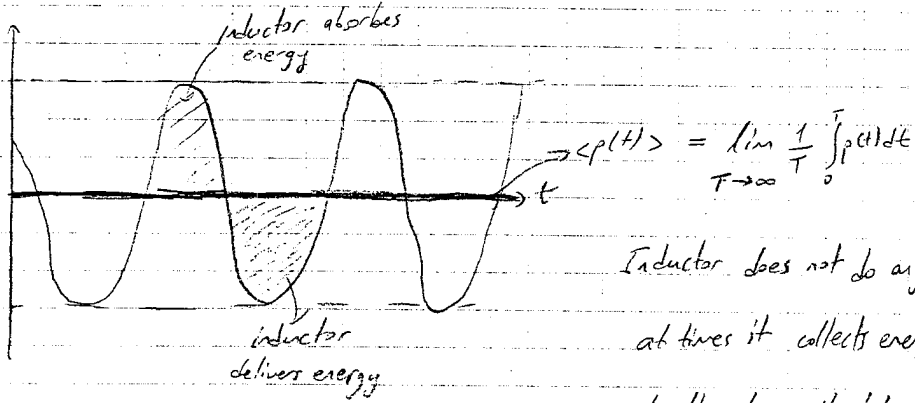 inductor absorbes
energy
<p(t)> = lim 1/T ∫p(t)dt
T→∞ 0 T
t
Inductor does not do
at times it collects
inductor
delivers energy